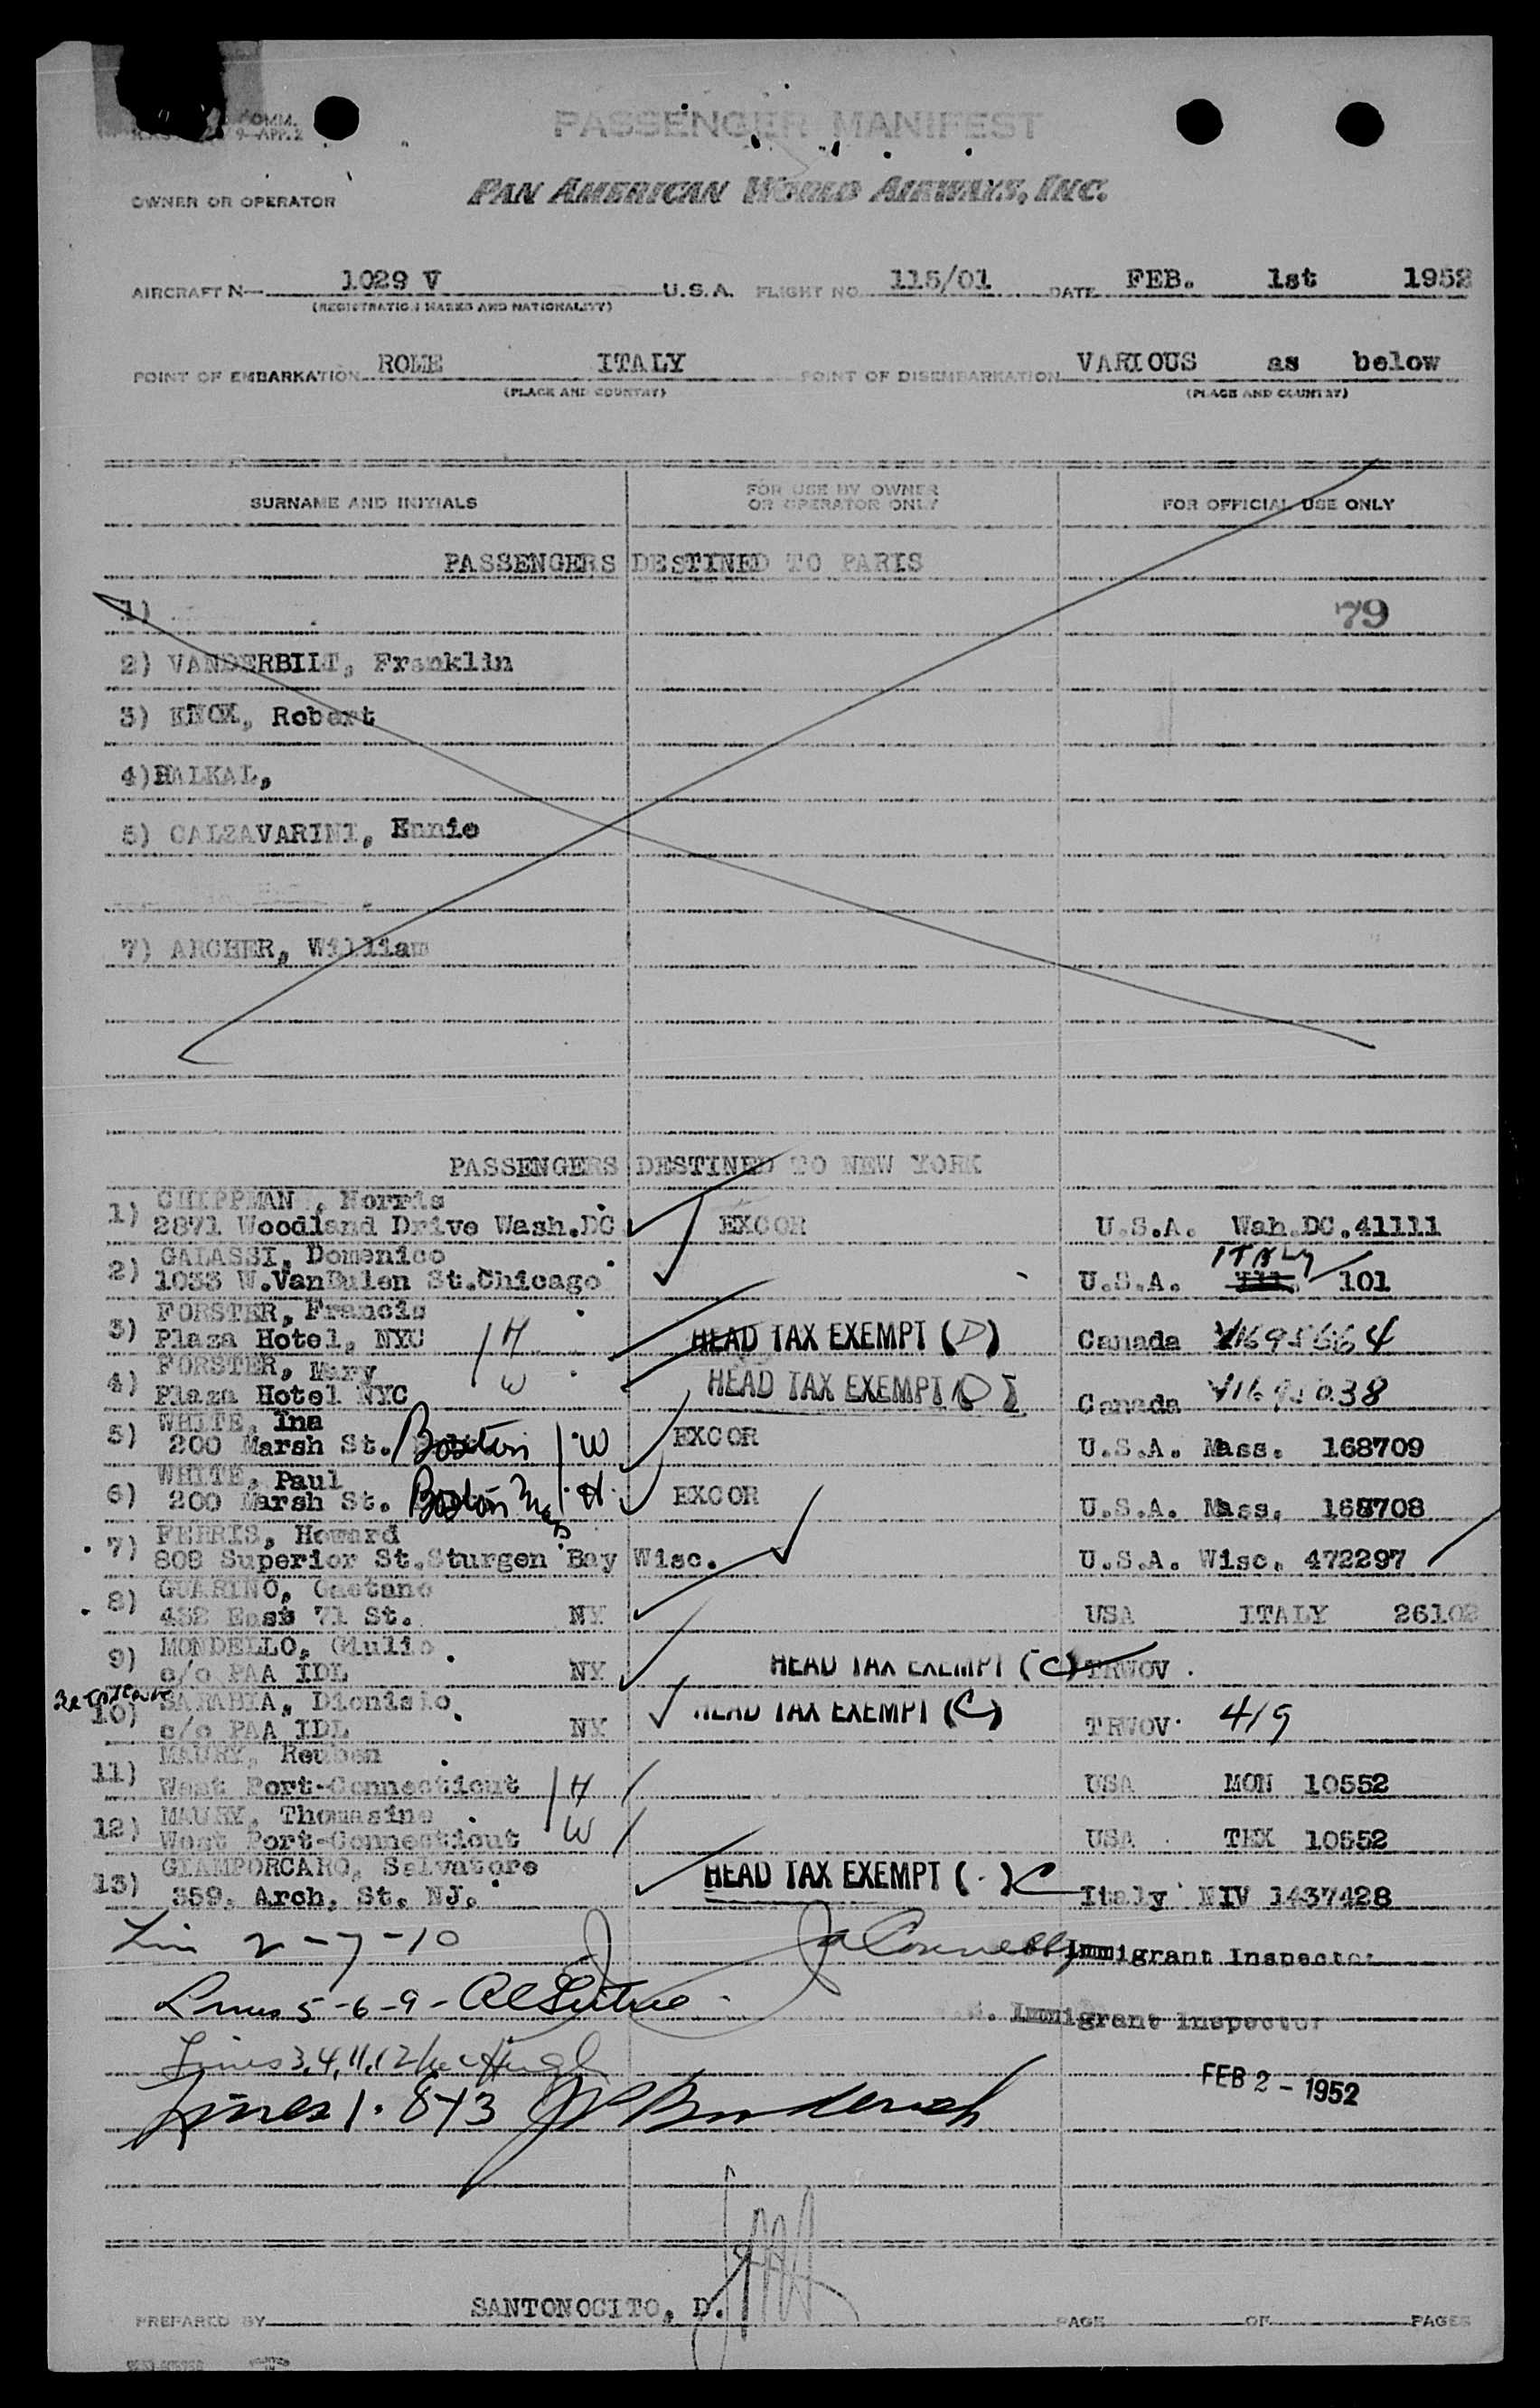 COMM.
9-APP.2
PASSENGER MANIFEST
OWNER OR OPERATOR PAN AMERICAN WORLD AIRWAYS, INC.
AIRCRAFT N— 1029 V U.S.A. FLIGHT NO. 115/01 DATE FEB. 1st 1952
(REGISTRATION MARKS AND NATIONALITY)
POINT OF EMBARKATION ROME ITALY POINT OF DISEMBARKATION VARIOUS as below
(PLACE AND COUNTRY) (PLACE AND COUNTRY)
SURNAME AND INITIALS FOR USE BY OWNER OR OPERATOR ONLY FOR OFFICIAL USE ONLY
PASSENGERS DESTINED TO PARIS
1) 79
2) VANDERBILT, Franklin
3) KNOX, Robert
4) HALKAL,
5) CALZAVARINI, Ennio
7) ARCHER, William
PASSENGERS DESTINED TO NEW YORK
1) CHIPPMAN, Norris
2871 Woodland Drive Wash.DC EXCOR U.S.A. Wah.DC.41111
2) GALASSI, Domenico ITALY
1033 W.VanBulen St.Chicago U.S.A. 101
3) FORSTER, Francis
Plaza Hotel, NYC H HEAD TAX EXEMPT (D) Canada V1695664
4) FORSTER, Mary
Plaza Hotel NYC W HEAD TAX EXEMPT (D) Canada V1695038
5) WHITE, Ina
200 Marsh St. Boston W EXCOR U.S.A. Mass. 168709
6) WHITE, Paul
200 Marsh St. Boston Mass H EXCOR U.S.A. Mass. 168708
7) FERRIS, Howard
808 Superior St.Sturgen Bay Wisc. U.S.A. Wisc. 472297
8) GUARINO, Gaetano
432 East 71 St. NY USA ITALY 26102
9) MONDELLO, Giulio
c/o PAA IDL NY HEAD TAX EXEMPT (C) TRWOV.
10) SARABIA, Dionisio
c/o PAA IDL NY HEAD TAX EXEMPT (C) TRWOV. 419
11) MAURY, Reuben
West Port-Connecticut H USA MON 10552
12) MAURY, Thomasine
West Port-Connecticut W USA TEX 10552
13) GIAMPORCARO, Salvatore
359. Arch. St. NJ. HEAD TAX EXEMPT (.) C Italy NIV 1437428
2-7-10 Immigrant Inspector
Lines 5-6-9- Immigrant Inspector
Lines 3,4,11,12
FEB 2 - 1952
Lines 1. 8-13
PREPARED BY SANTONOCITO, D. PAGE OF PAGES